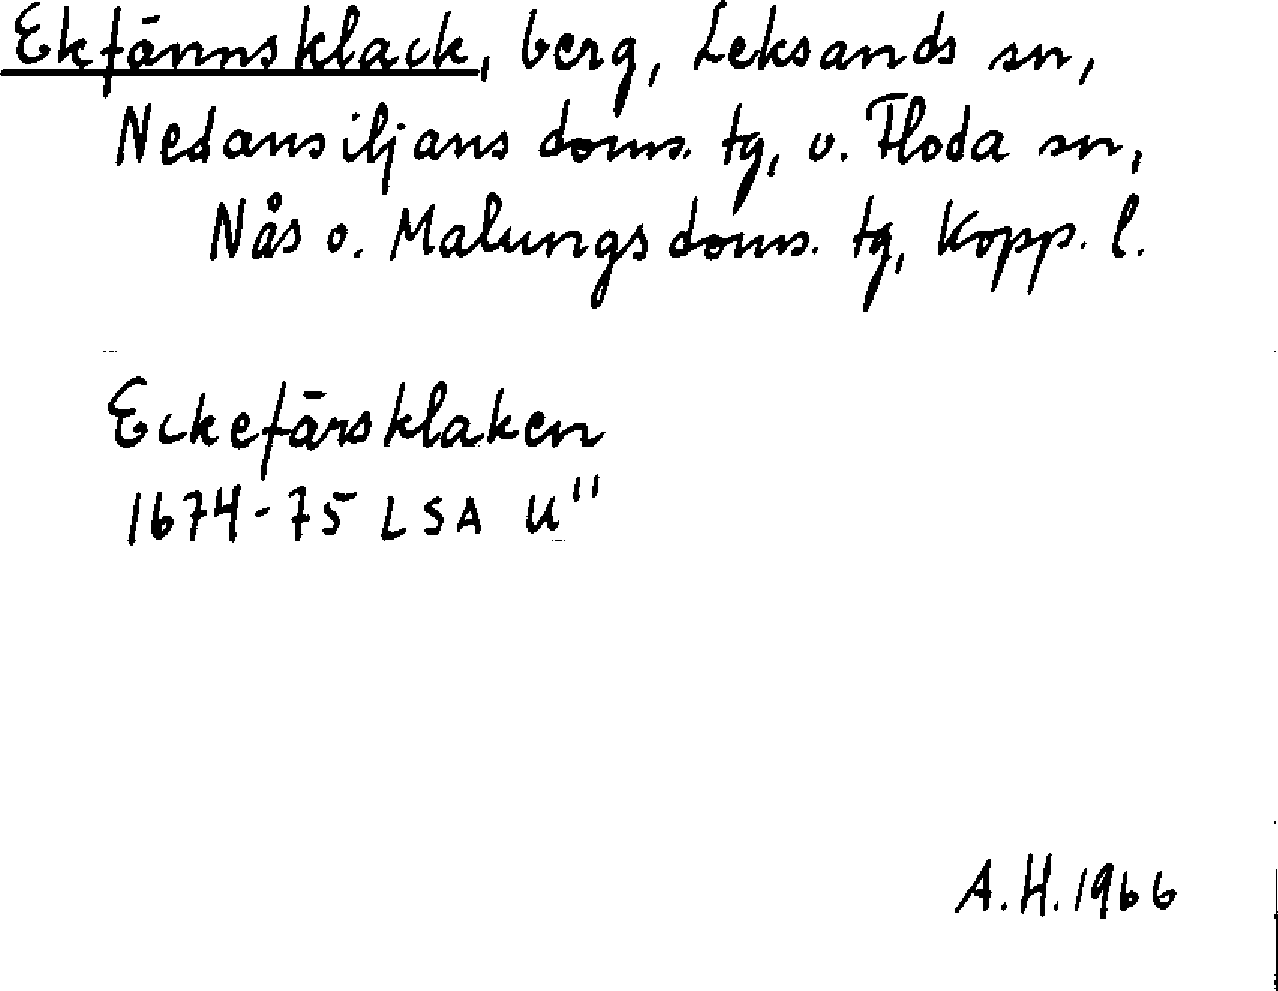 Ekfännsklack, berg, Leksands sn,
Nedansiljans doms. tg, o. Floda sn,
Nås o. Malungs doms. tg, Kopp. l.
Eckefärsklaken
1674-75 LSA U"
A.H. 1966